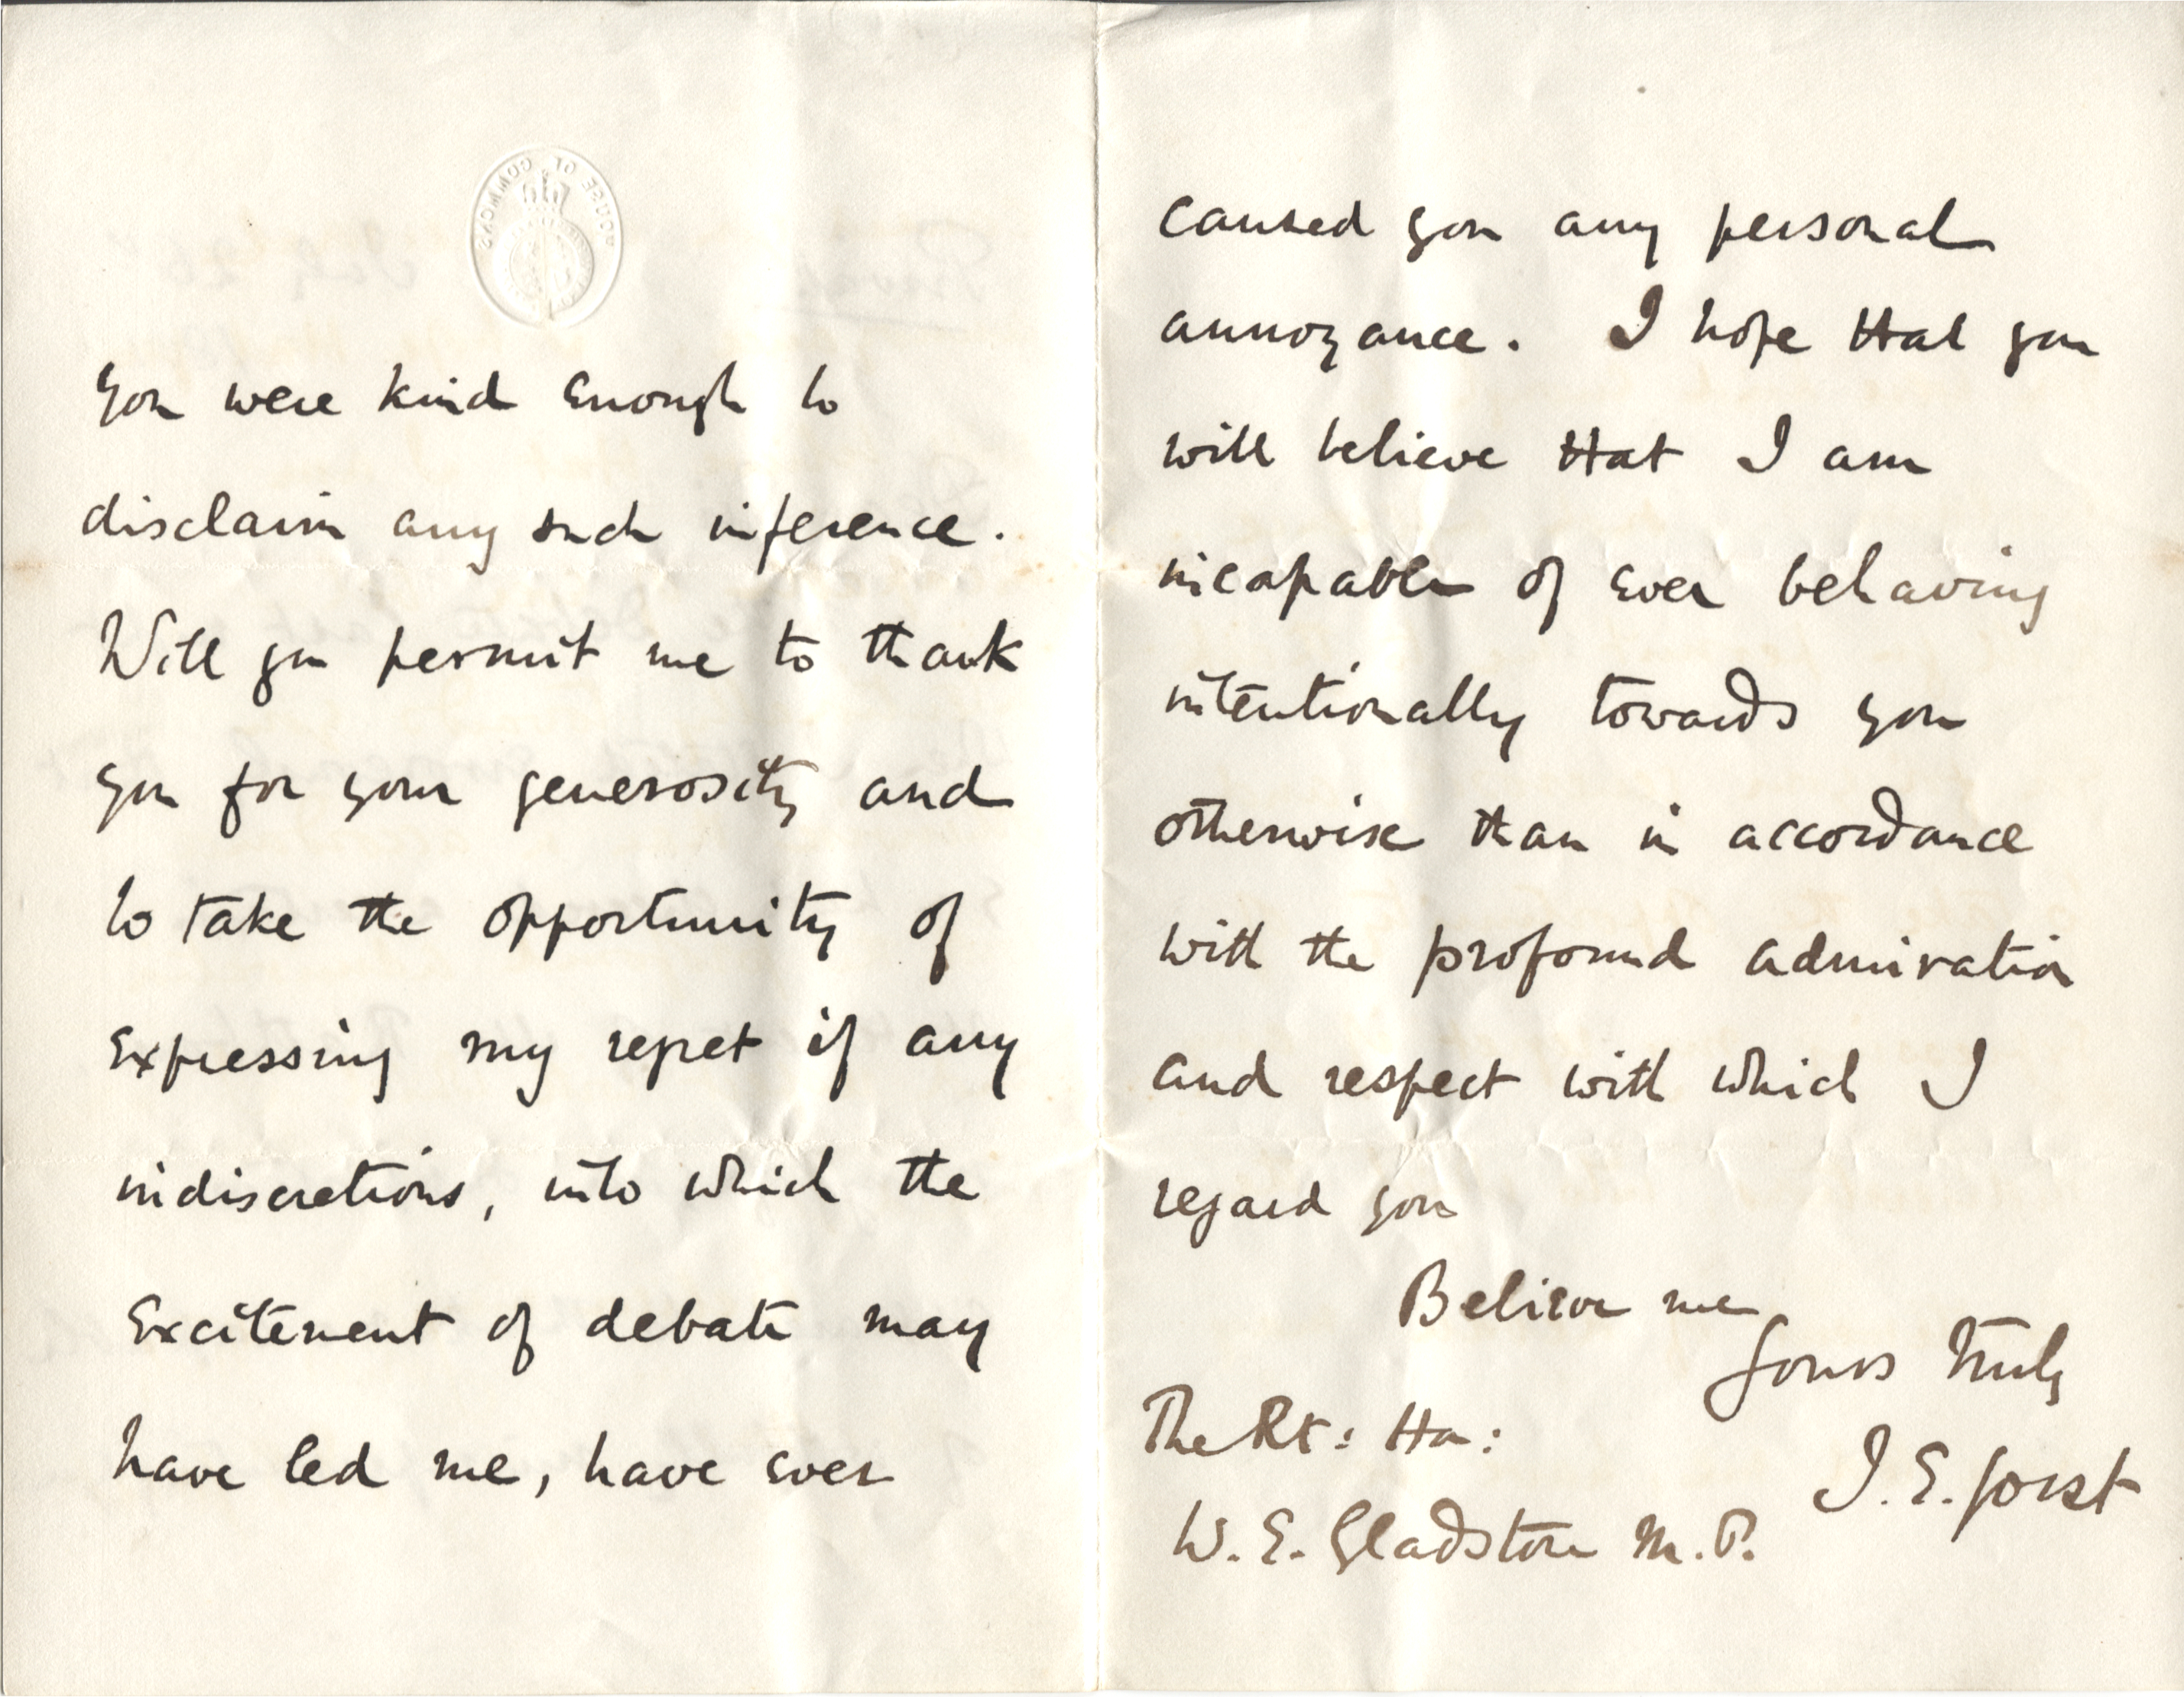 HOUSE OF COMMONS
you were kind enough to
disclaim any such inference.
Will you permit me to thank
you for your generosity and
to take the opportunity of
expressing my regret if any
indiscretions, into which the
excitement of debate may
have led me, have ever
caused you any personal
annoyance. I hope that you
will believe that I am
incapable of ever behaving
intentionally towards you
otherwise than in accordance
with the profound admiration
and respect with which I
regard you
Believe me
Yours truly
J. E. Gorst
The Rt: Hon:
W. E. Gladstone M.P.